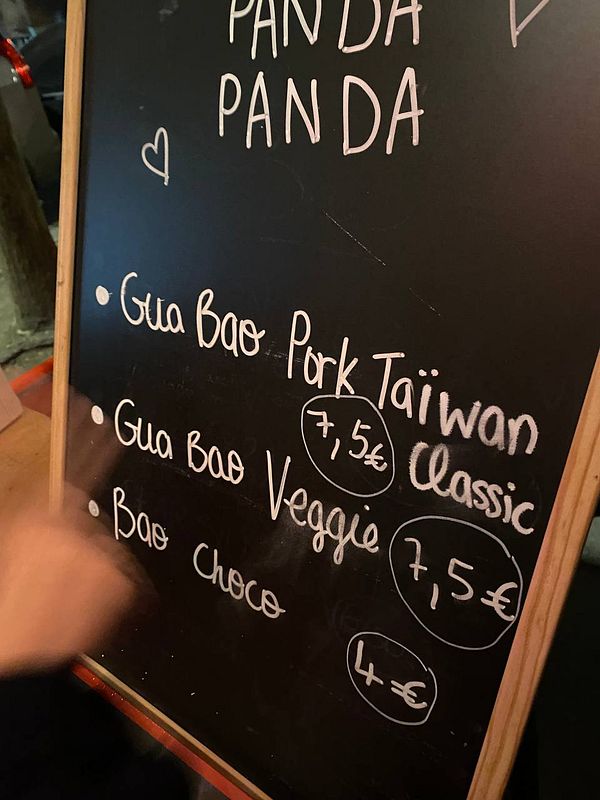 PANDA
PANDA
• Gua Bao Pork Taïwan
Classic
7,5€
• Gua Bao Veggie
7,5€
• Bao choco
4€